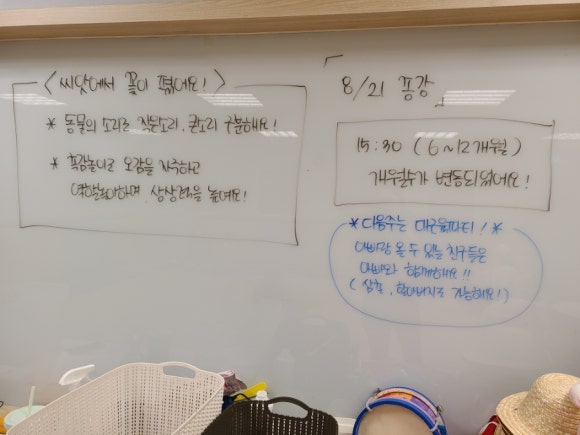 < 씨앗에서 꽃이 폈어요! >
* 동물의 소리로 작은소리, 큰소리 구분해요!
* 촉감놀이로 오감을 자극하고
역할놀이하면, 상상력을 높여요!
「 8/21 종강 」
15:30 ( 6~12개월 )
개월수가 변동되었어요!
* 다음주는 파티! *
아빠랑 올 수 있는 친구들은
아빠와 함께해요!!
( 삼촌, 할아버지도 가능해요! )